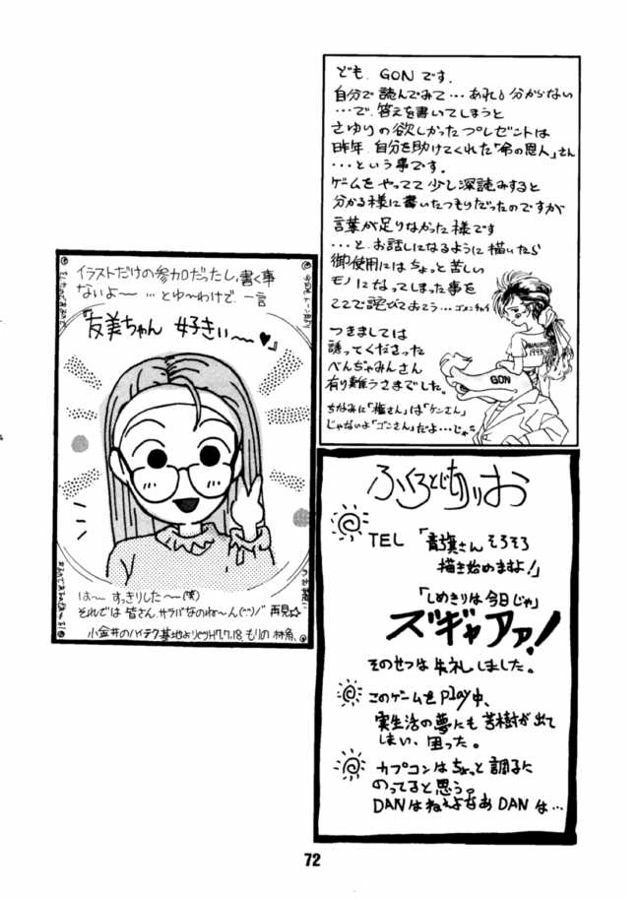 ども、GONです。
自分で読んでみて…あれも分からない
…で、答えを書いてしまうと
さゆりの欲しかったプレゼントは
昨年、自分を助けてくれた「命の恩人」さん
…という事です。
ゲームをやってて少し深読みすると
分かる様に書いたつもりだったのですが
言葉が足りなかった様です
…と、お話しになるように描いたら
御使用にはちょっと苦しい
モノになってしまった事を
ここで詫びておこう…ゴメンチャイ
つきましては
誘ってくださった
べんぢゃみんさん
有り難うさまでした。
ちなみに「権さん」は「ケンさん」
じゃないよ「ゴンさん」だよ…じゃ
GON
イラストだけの参加だったし、書く事
ないよ〜 …とゆ〜わけで一言
『友美ちゃん 好きぃ〜♥』
は〜 すっきりした〜(笑)
それでは皆さん、サラバなのね〜ん(^^)ノ 再見☆
小金井のハイテク基地より
ふくろとじありお
TEL「青旗さんそろそろ
描き始めますよ!」
「しめきりは今日じゃ」
ズギャアァ!
そのせつは失礼しました。
このゲームをplay中、
実生活の夢にも苦樹が出て
しまい、困った。
カプコンはちょっと調子に
のってると思う。
DANはねぇよなあDANは…
72